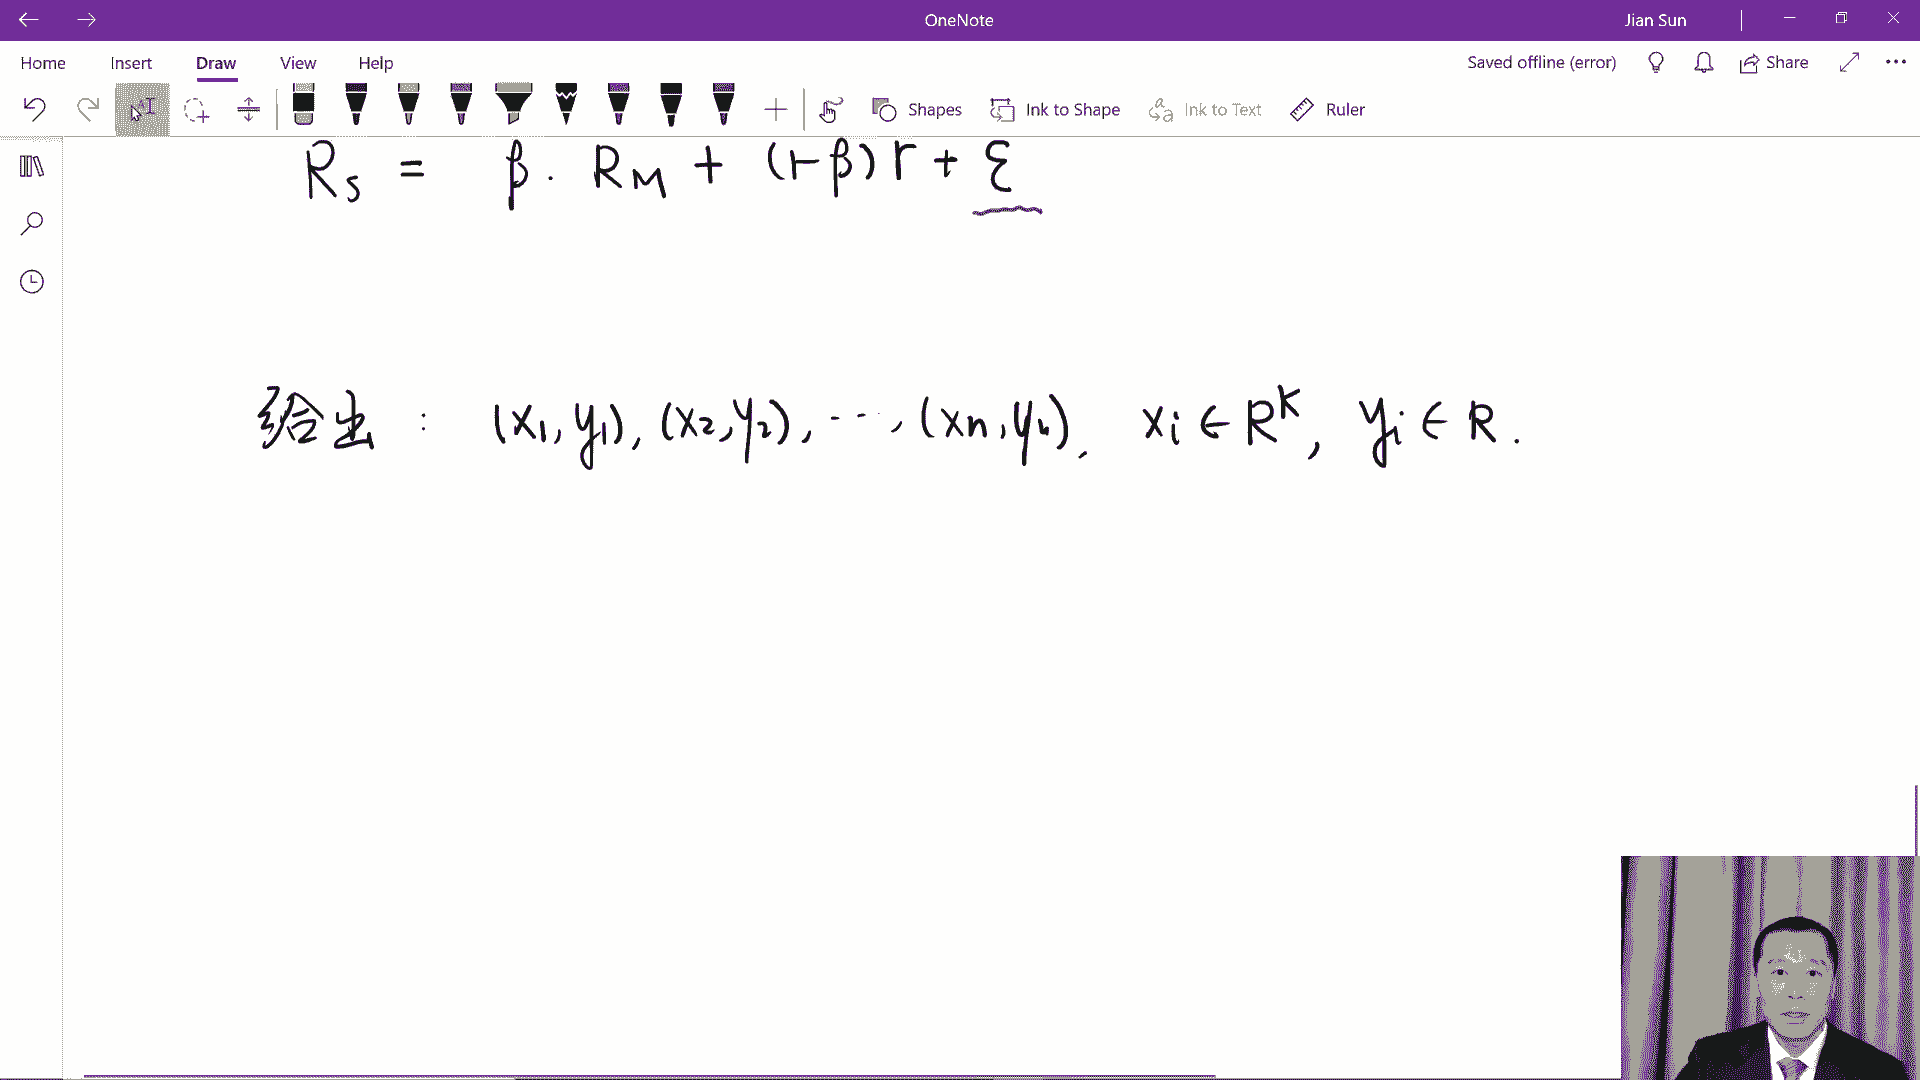 OneNote
Jian Sun
Home Insert Draw View Help
Saved offline (error)
Share
Shapes
Ink to Shape
Ink to Text
Ruler
R_S = β · R_M + (1-β) r + ε
给出 : (x₁, y₁), (x₂, y₂), ⋯, (xₙ, yₙ). xᵢ ∈ R^K, yᵢ ∈ R.